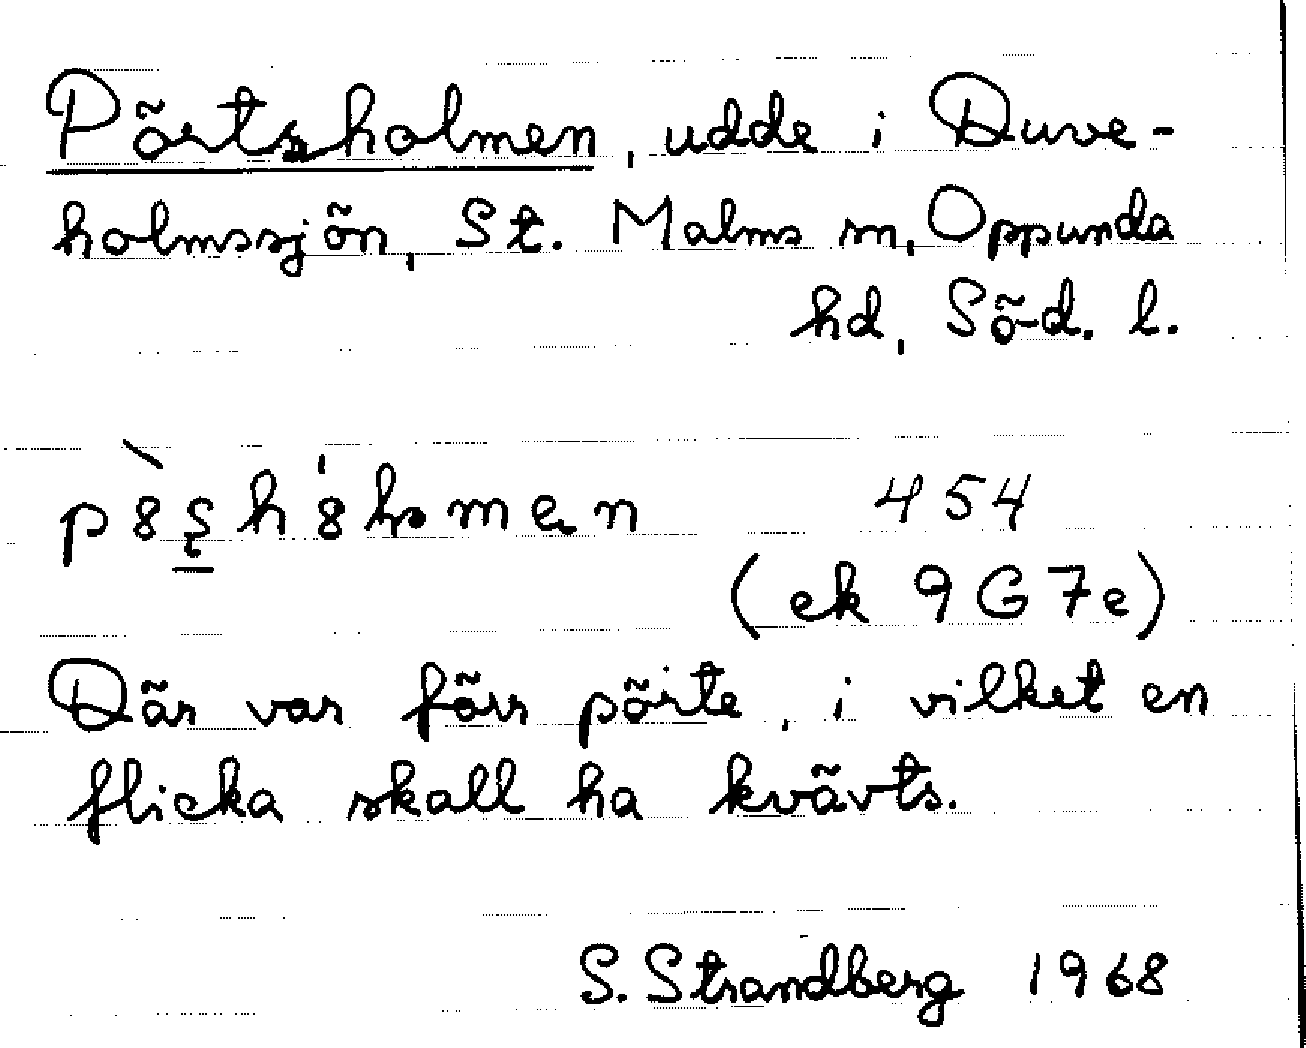 Pörtsholmen, udde i Duve-
holmssjön, St. Malms sn, Oppunda
hd, Söd. l.
454
(ek 9G7e)
Där var förr pörte, i vilket en
flicka skall ha kvävts.
S. Strandberg 1968